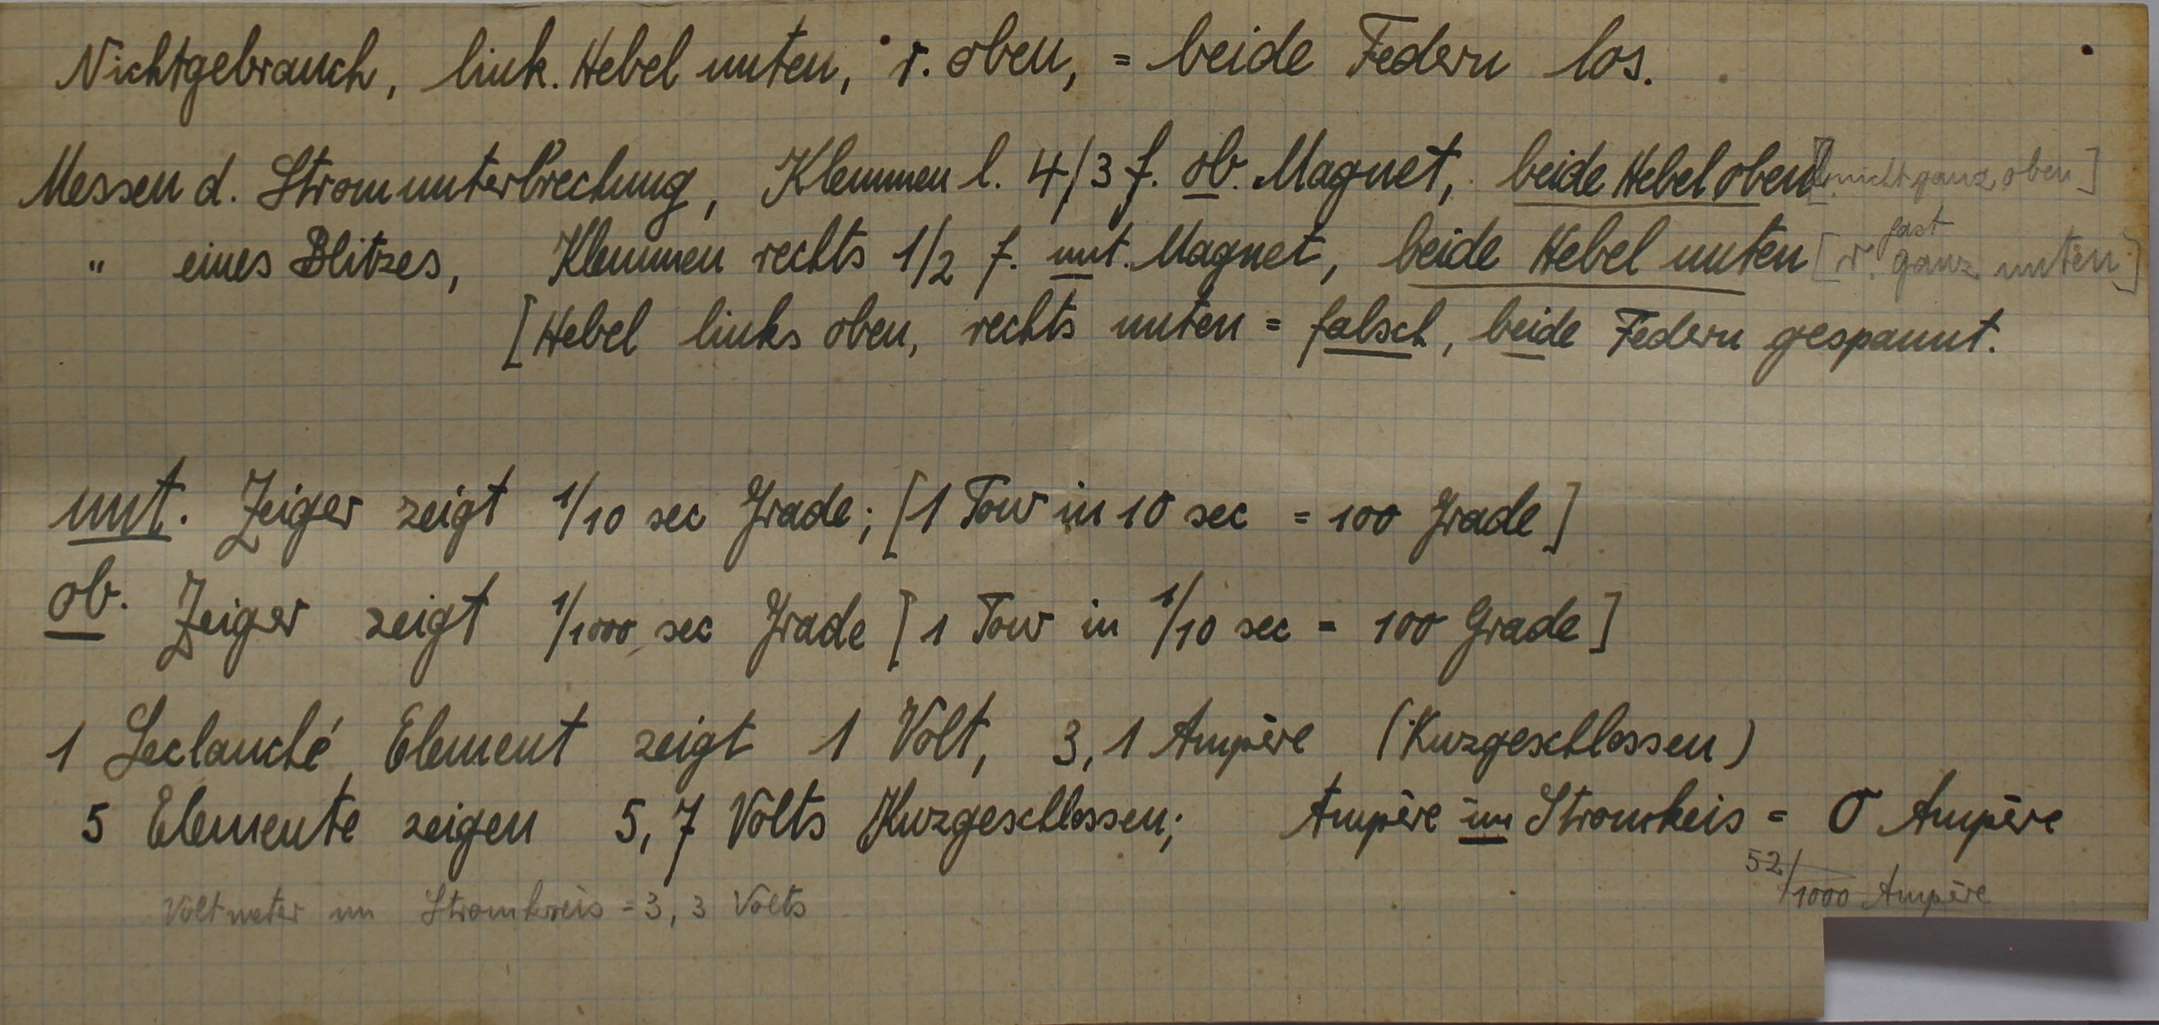 Nichtgebrauch, link. Hebel unten, r. oben, = beide Federn los.
Messen d. Stromunterbrechung, Klemmen l. 4/3 f. ob. Magnet, beide Hebel oben [nicht ganz oben]
" eines Blitzes, Klemmen rechts 1/2 f. unt. Magnet, beide Hebel unten [r. fast ganz unten]
[Hebel links oben, rechts unten = falsch, beide Federn gespannt.
unt. Zeiger zeigt 1/10 sec Grade; [1 Tour in 10 sec = 100 Grade]
ob. Zeiger zeigt 1/1000 sec Grade [1 Tour in 1/10 sec = 100 Grade]
1 Leclanché Element zeigt 1 Volt, 3,1 Ampère (Kurzgeschlossen)
5 Elemente zeigen 5,7 Volts Kurzgeschlossen; Ampère im Stromkreis = 0 Ampère
52/1000 Ampère
Voltmeter im Stromkreis = 3,3 Volts